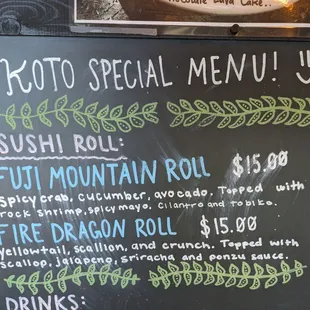 Chocolate Lava Cake..
KOTO SPECIAL MENU! :)
SUSHI ROLL:
FUJI MOUNTAIN ROLL $15.00
Spicy crab, cucumber, avocado, Topped with
rock shrimp, spicy mayo. Cilantro and tobiko.
FIRE DRAGON ROLL $15.00
Yellowtail, scallion, and crunch. Topped with
scallop, jalapeno, sriracha and ponzu sauce.
DRINKS: